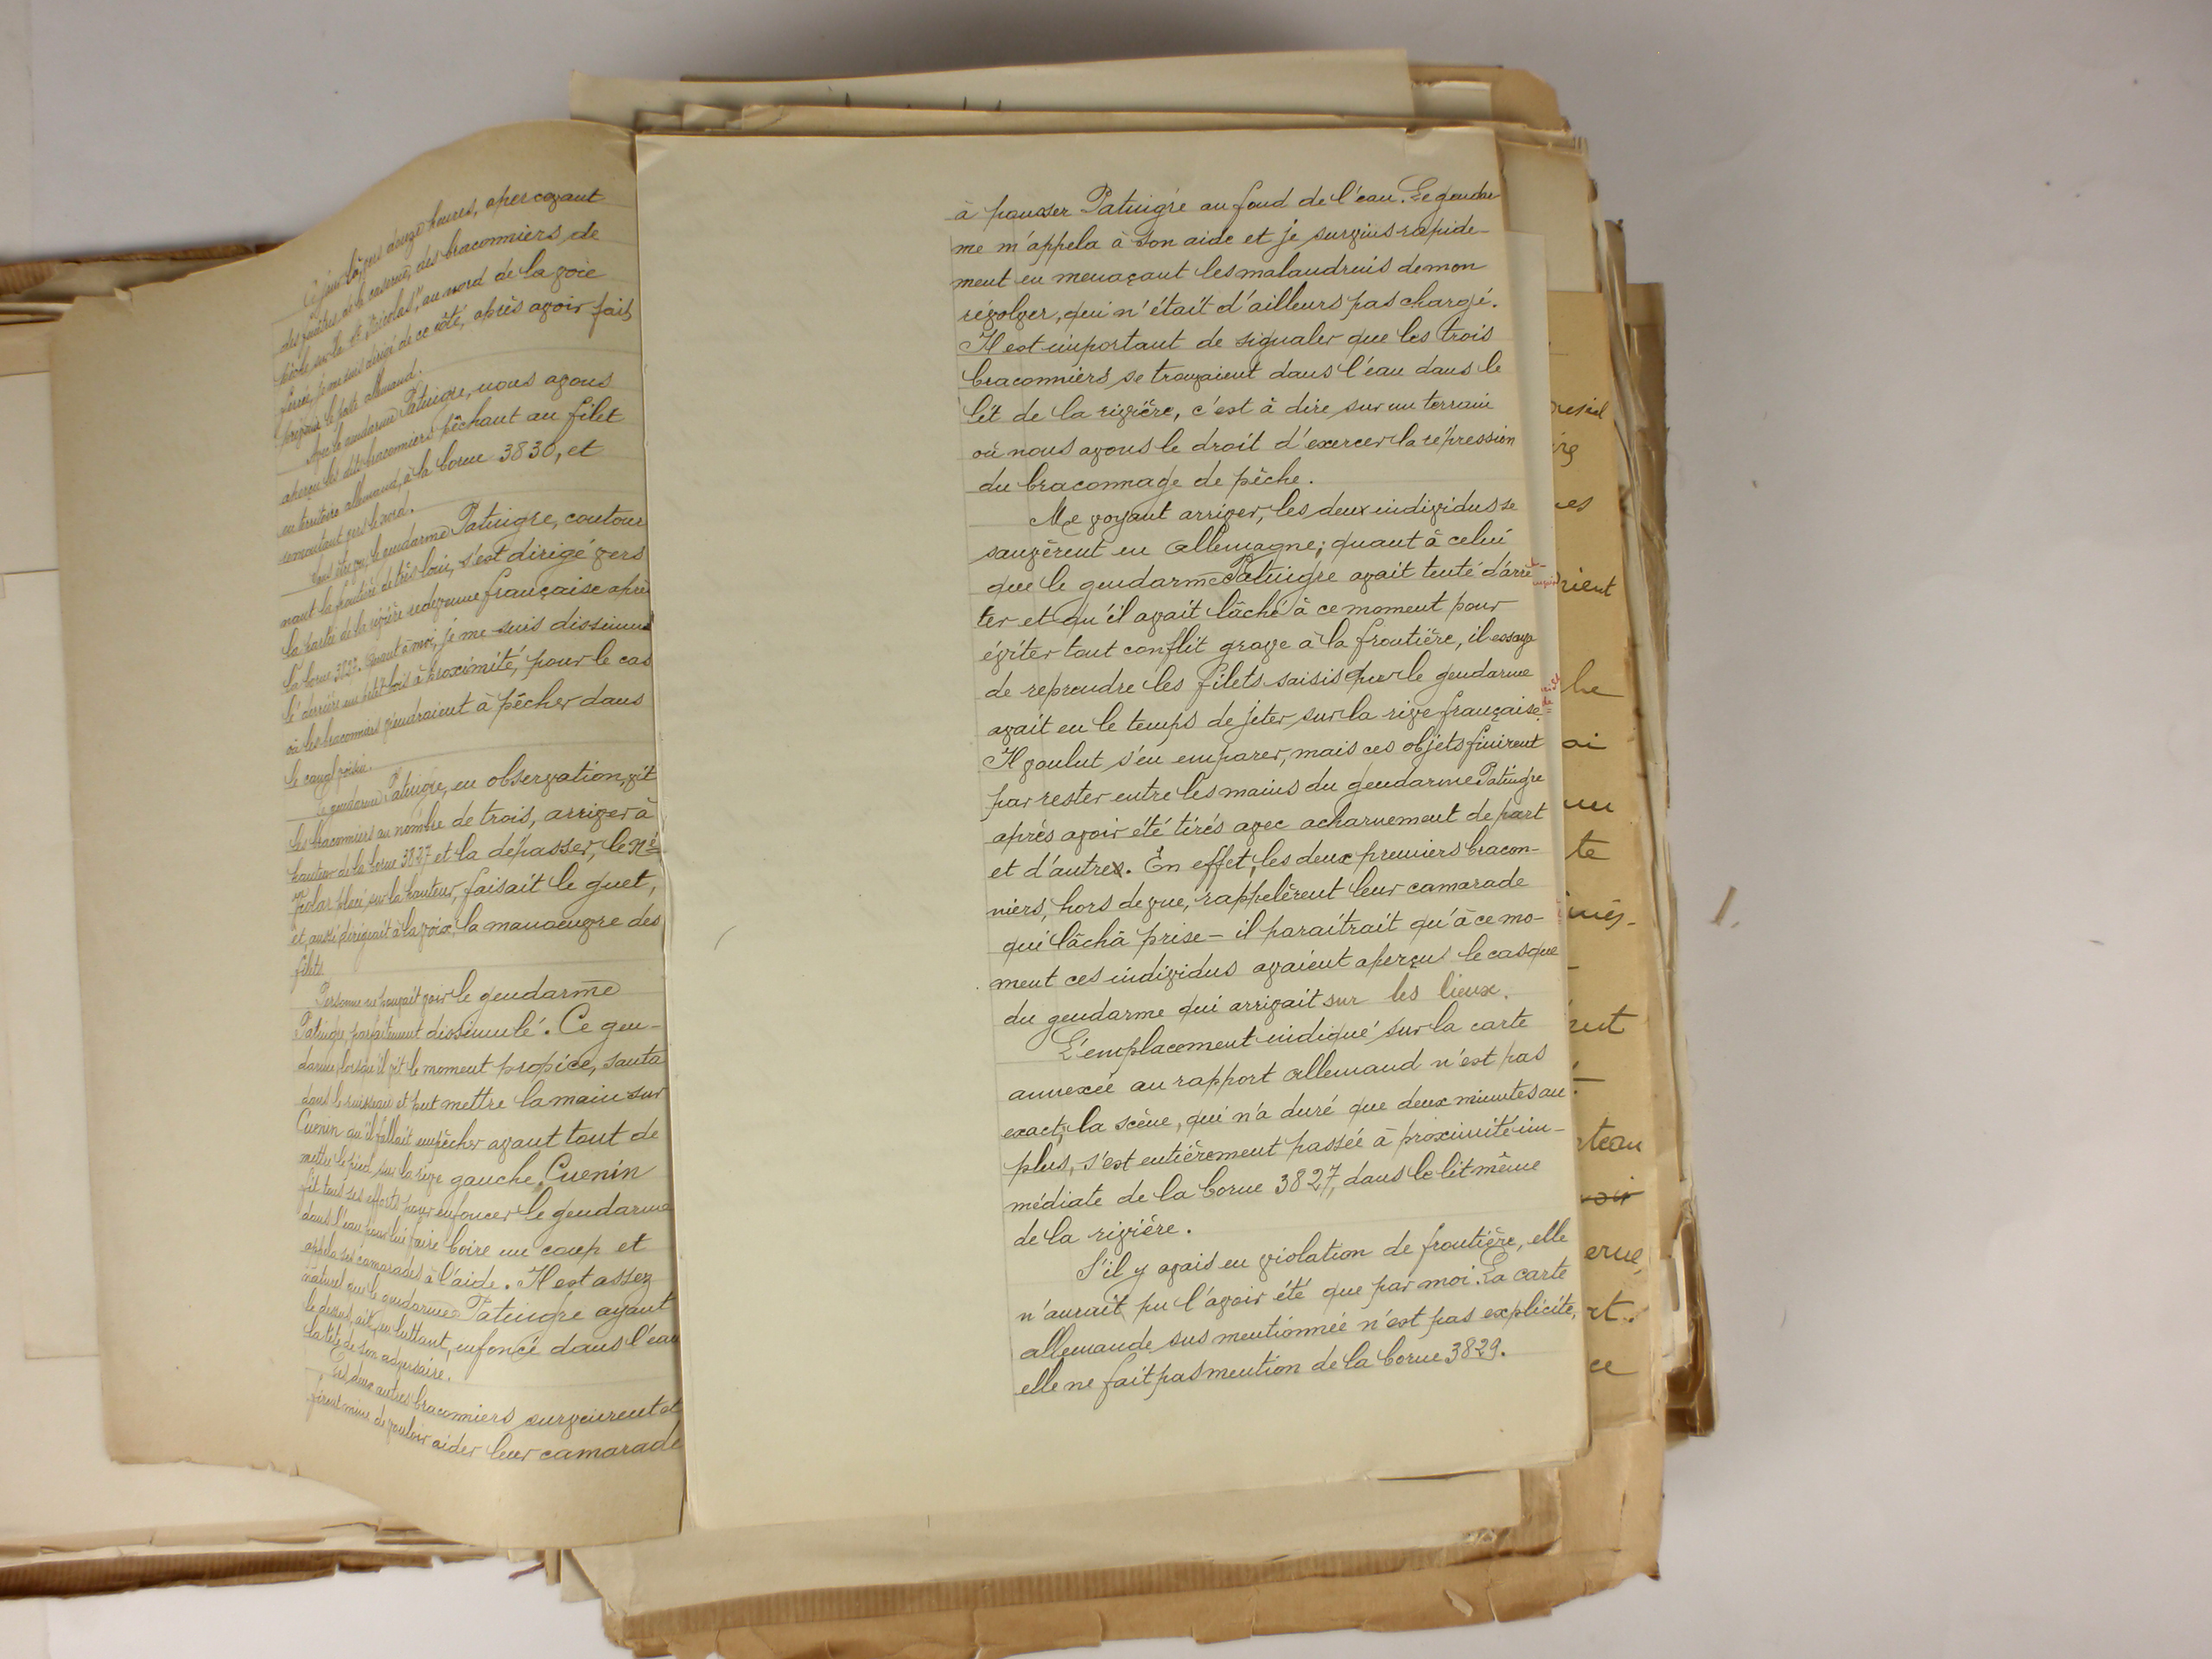 Ce jour là, vers douze heures, apercevant
des fenêtres de la caserne, des braconniers de
pêche sur le St Nicolas, au nord de la voie
ferrée, je me suis dirigé de ce côté, après avoir fait
prévenir le poste allemand.
Avec le gendarme Patingre, nous avons
aperçu les dits braconniers pêchant au filet
en territoire allemand, à la borne 3830, et
remontant vers le nord.
le gendarme Patingre, contour
nant la frontière de très loin, s'est dirigé vers
la partie de la rivière redevenue française après
la borne 3827. Quant à moi, je me suis dissimu
lé derrière un petit bois à proximité, pour le cas
où les braconniers viendraient à pêcher dans
le canal voisin.
Le gendarme Patingre, en observation, vit
les braconniers au nombre de trois, arriver à
hauteur de la borne 3827 et la dépasser, le Né
placé sur la hauteur, faisait le guet,
et aussi dirigeait à la voix, la manoeuvre des
filets.
Personne ne pouvait voir le gendarme
Patingre, parfaitement dissimulé. Ce gen-
darme, lorsqu'il vit le moment propice, sauta
dans le ruisseau et put mettre la main sur
Cuenin qu'il fallait empêcher avant tout de
mettre le pied sur la rive gauche. Cuenin
fit tous ses efforts pour enfoncer le gendarme
dans l'eau pour lui faire boire un coup et
appela ses camarades à l'aide. Il est assez
naturel que le gendarme Patingre ayant
le dessus, ait, en luttant, enfoncé dans l'eau
la tête de son adversaire.
Les deux autres braconniers survinrent et
firent mine de vouloir aider leur camarade
à pousser Patingre au fond de l'eau. Le gendar
me m'appela à son aide et je survins rapide-
ment en menaçant les malandrins de mon
révolver, qui n'était d'ailleurs pas chargé.
Il est important de signaler que les trois
braconniers se trouvaient dans l'eau dans le
lit de la rivière, c'est à dire sur un terrain
où nous avons le droit d'exercer la répression
du braconnage de pêche.
Me voyant arriver, les deux individus se
sauvèrent en Allemagne; quant à celui
que le gendarme Patingre avait tenté d'arrê-
ter et qu'il avait lâché à ce moment pour
éviter tout conflit grave à la frontière, il essaya
de reprendre les filets saisis que le gendarme
avait eu le temps de jeter sur la rive française.
Il voulut s'en emparer, mais ces objets finirent
par rester entre les mains du gendarme Patingre
après avoir été tirés avec acharnement de part
et d'autres. En effet, les deux premiers bracon-
niers, hors de vue, rappelèrent leur camarade
qui lâchâ prise - il paraîtrait qu'à ce mo-
ment ces individus avaient aperçus le casque
du gendarme qui arrivait sur les lieux.
L'emplacement indiqué sur la carte
annexée au rapport allemand n'est pas
exact, la scène, qui n'a duré que deux minutes au
plus, s'est entièrement passée à proximité im-
médiate de la borne 3827, dans le lit même
de la rivière.
S'il y avais eu violation de frontière, elle
n'aurait pu l'avoir été que par moi. La carte
allemande sus mentionnée n'est pas explicite,
elle ne fait pas mention de la borne 3829.